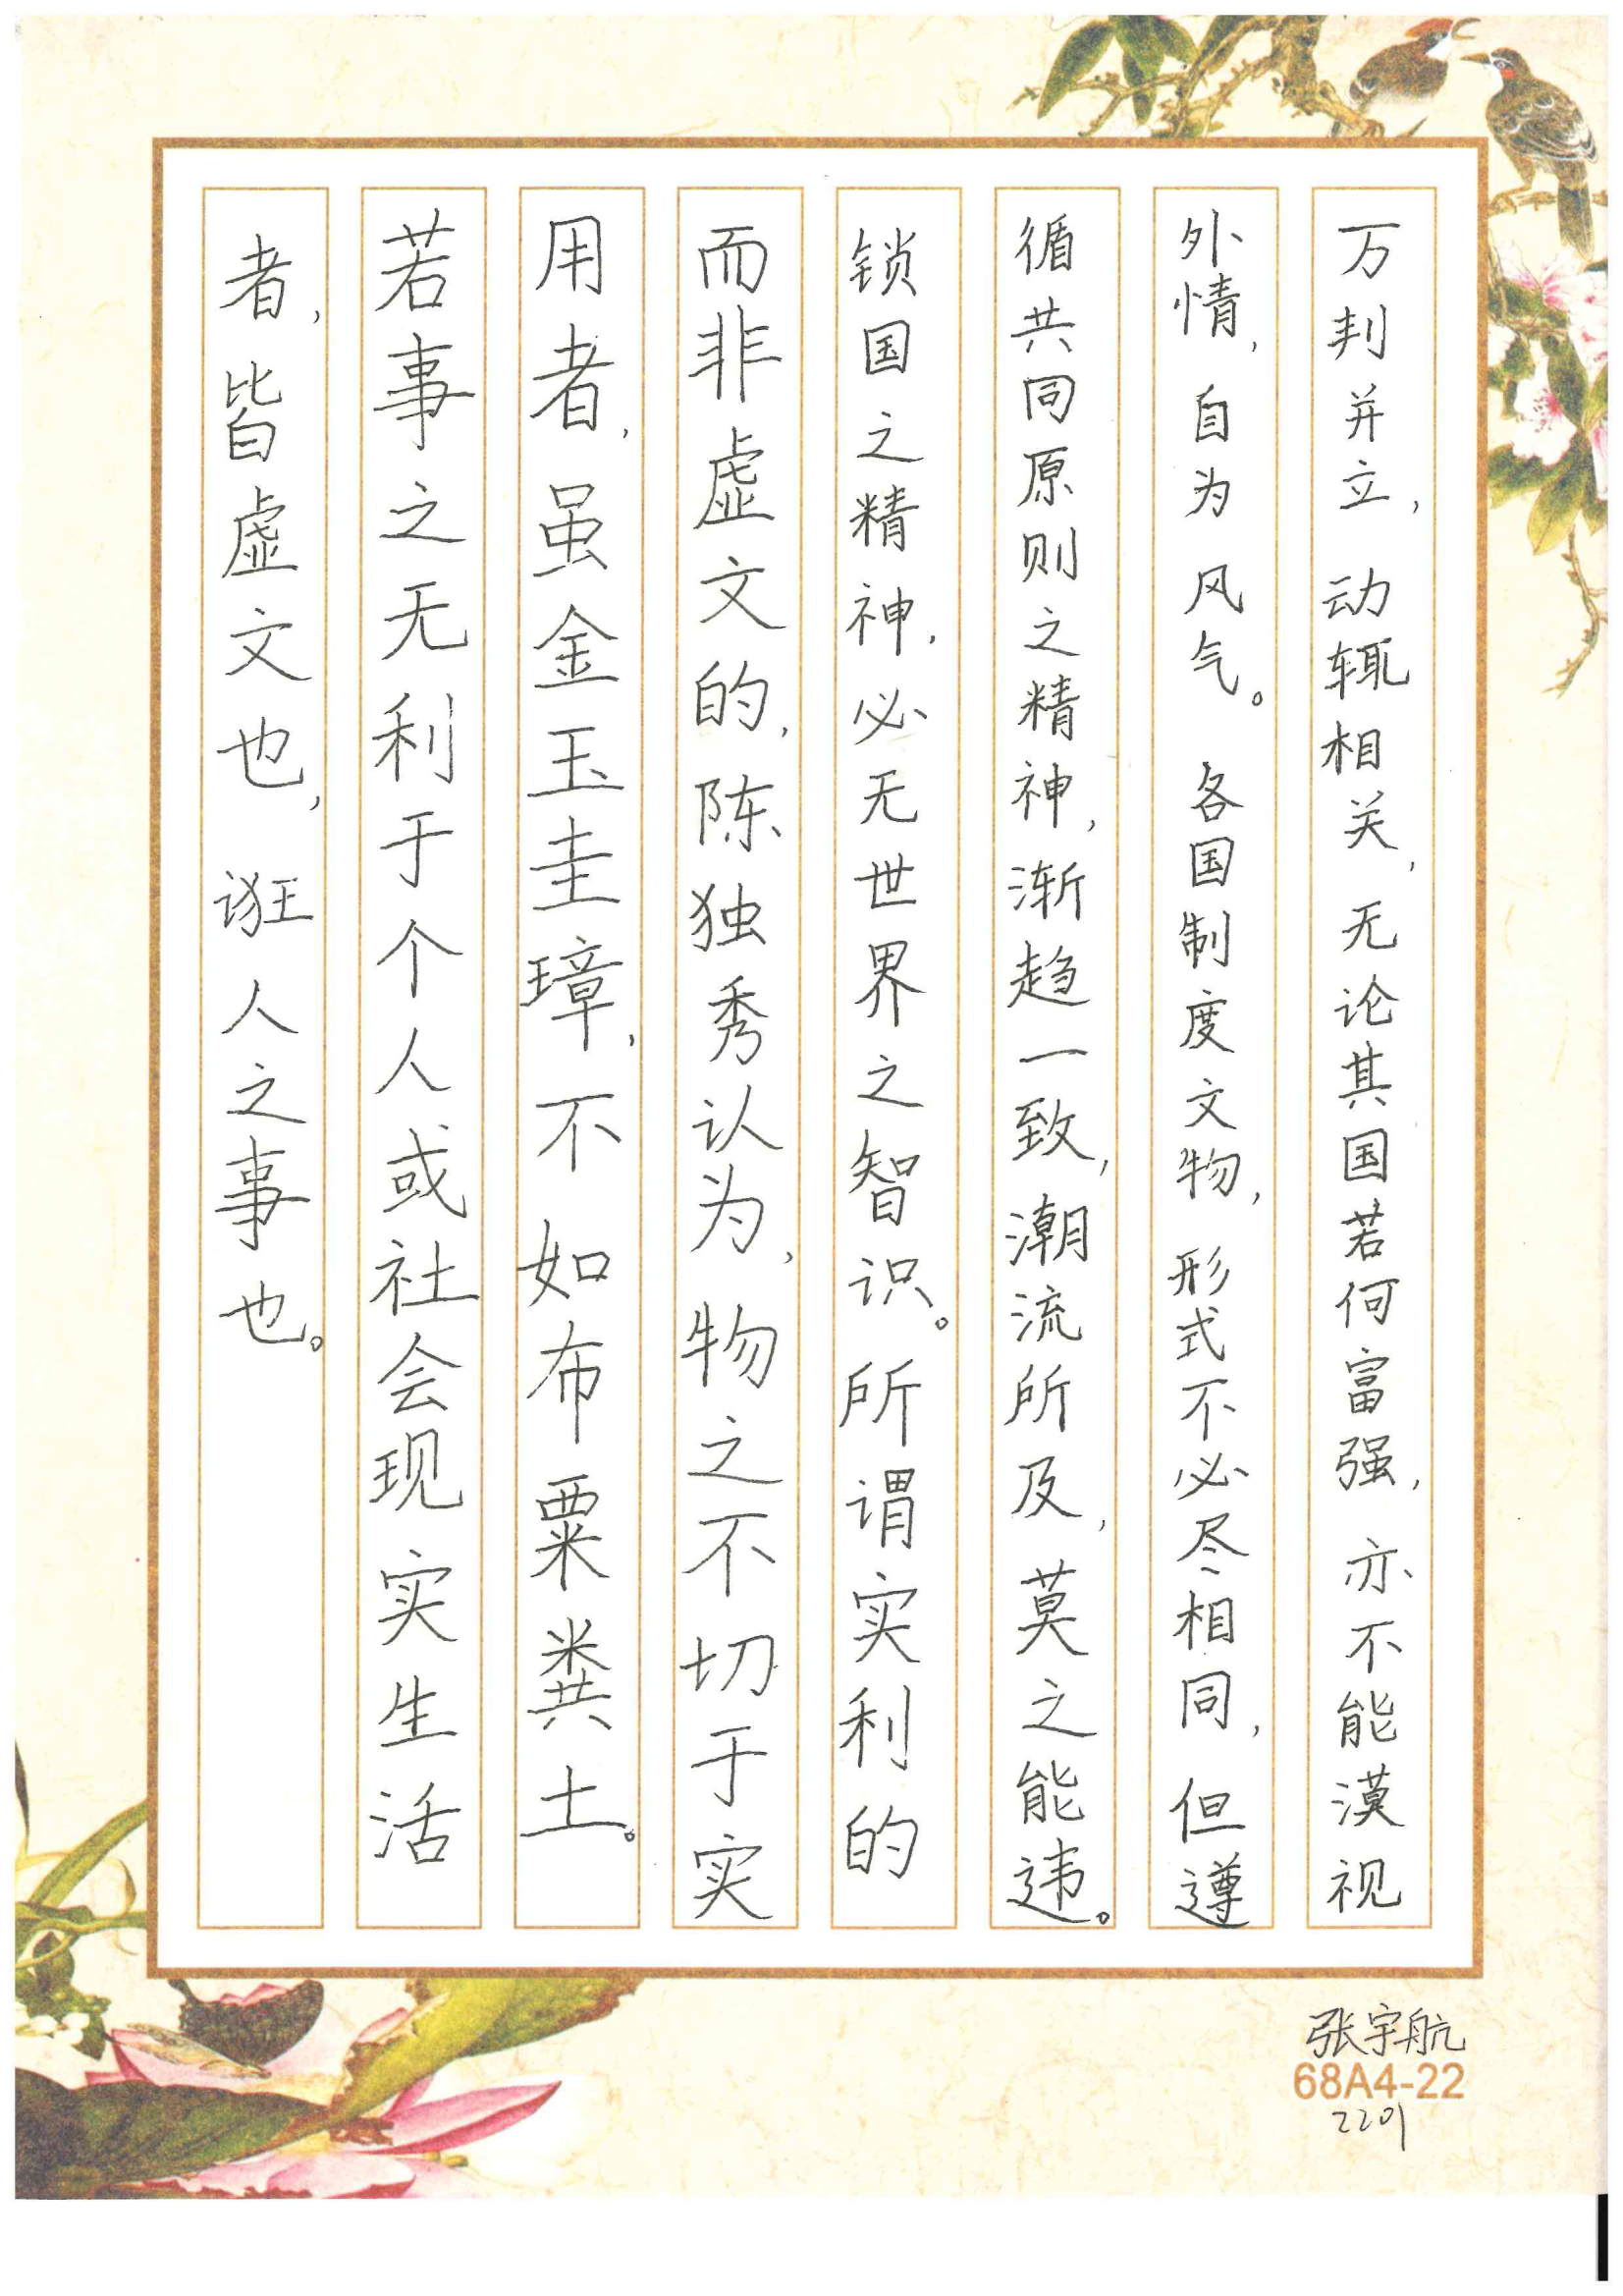 万判并立，动辄相关，无论其国若何富强，亦不能漠视
外情，自为风气。各国制度文物，形式不必尽相同，但遵
循共同原则之精神，渐趋一致，潮流所及，莫之能违。
锁国之精神，必无世界之智识。所谓实利的
而非虚文的，陈独秀认为，物之不切于实
用者，虽金玉圭璋，不如布粟粪土。
若事之无利于个人或社会现实生活
者，皆虚文也，诳人之事也。
张宇航
68A4-22
2201